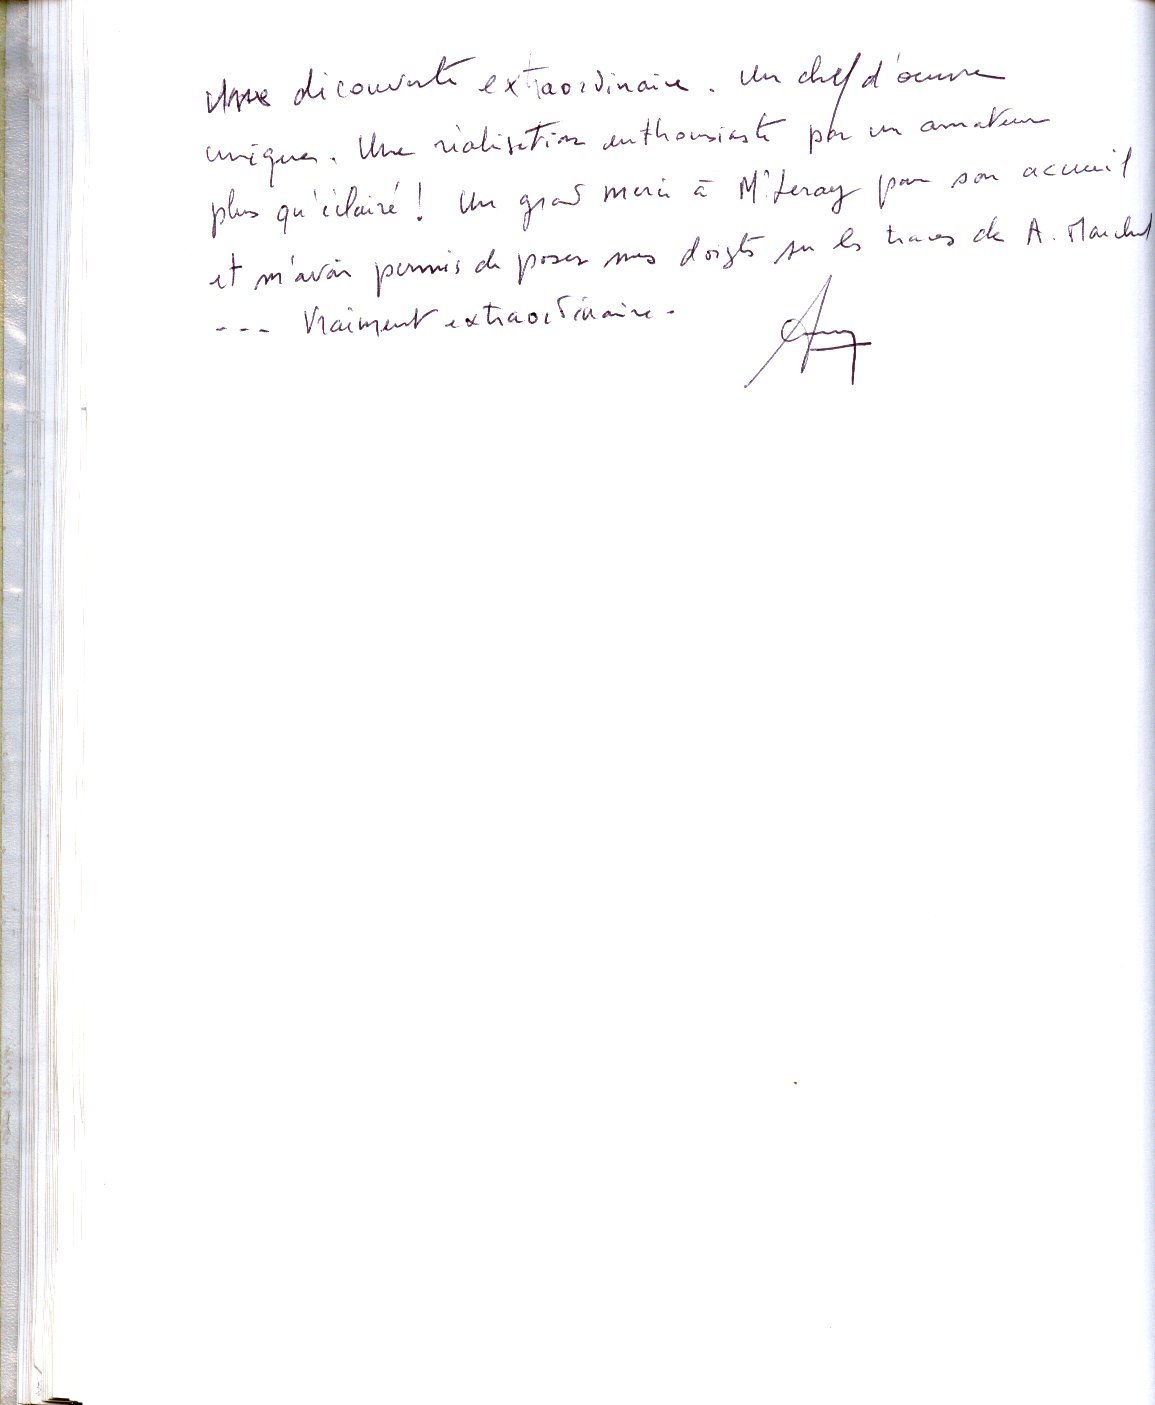 Une découverte extraordinaire. Un chef d'oeuvre
unique. Une réalisation enthousiaste par un amateur
plus qu'éclairé ! Un grand merci à Mr Leray pour son accueil
et m'avoir permis de poser mes doigts sur les traces de A. Marchal
--- Vraiment extraordinaire.